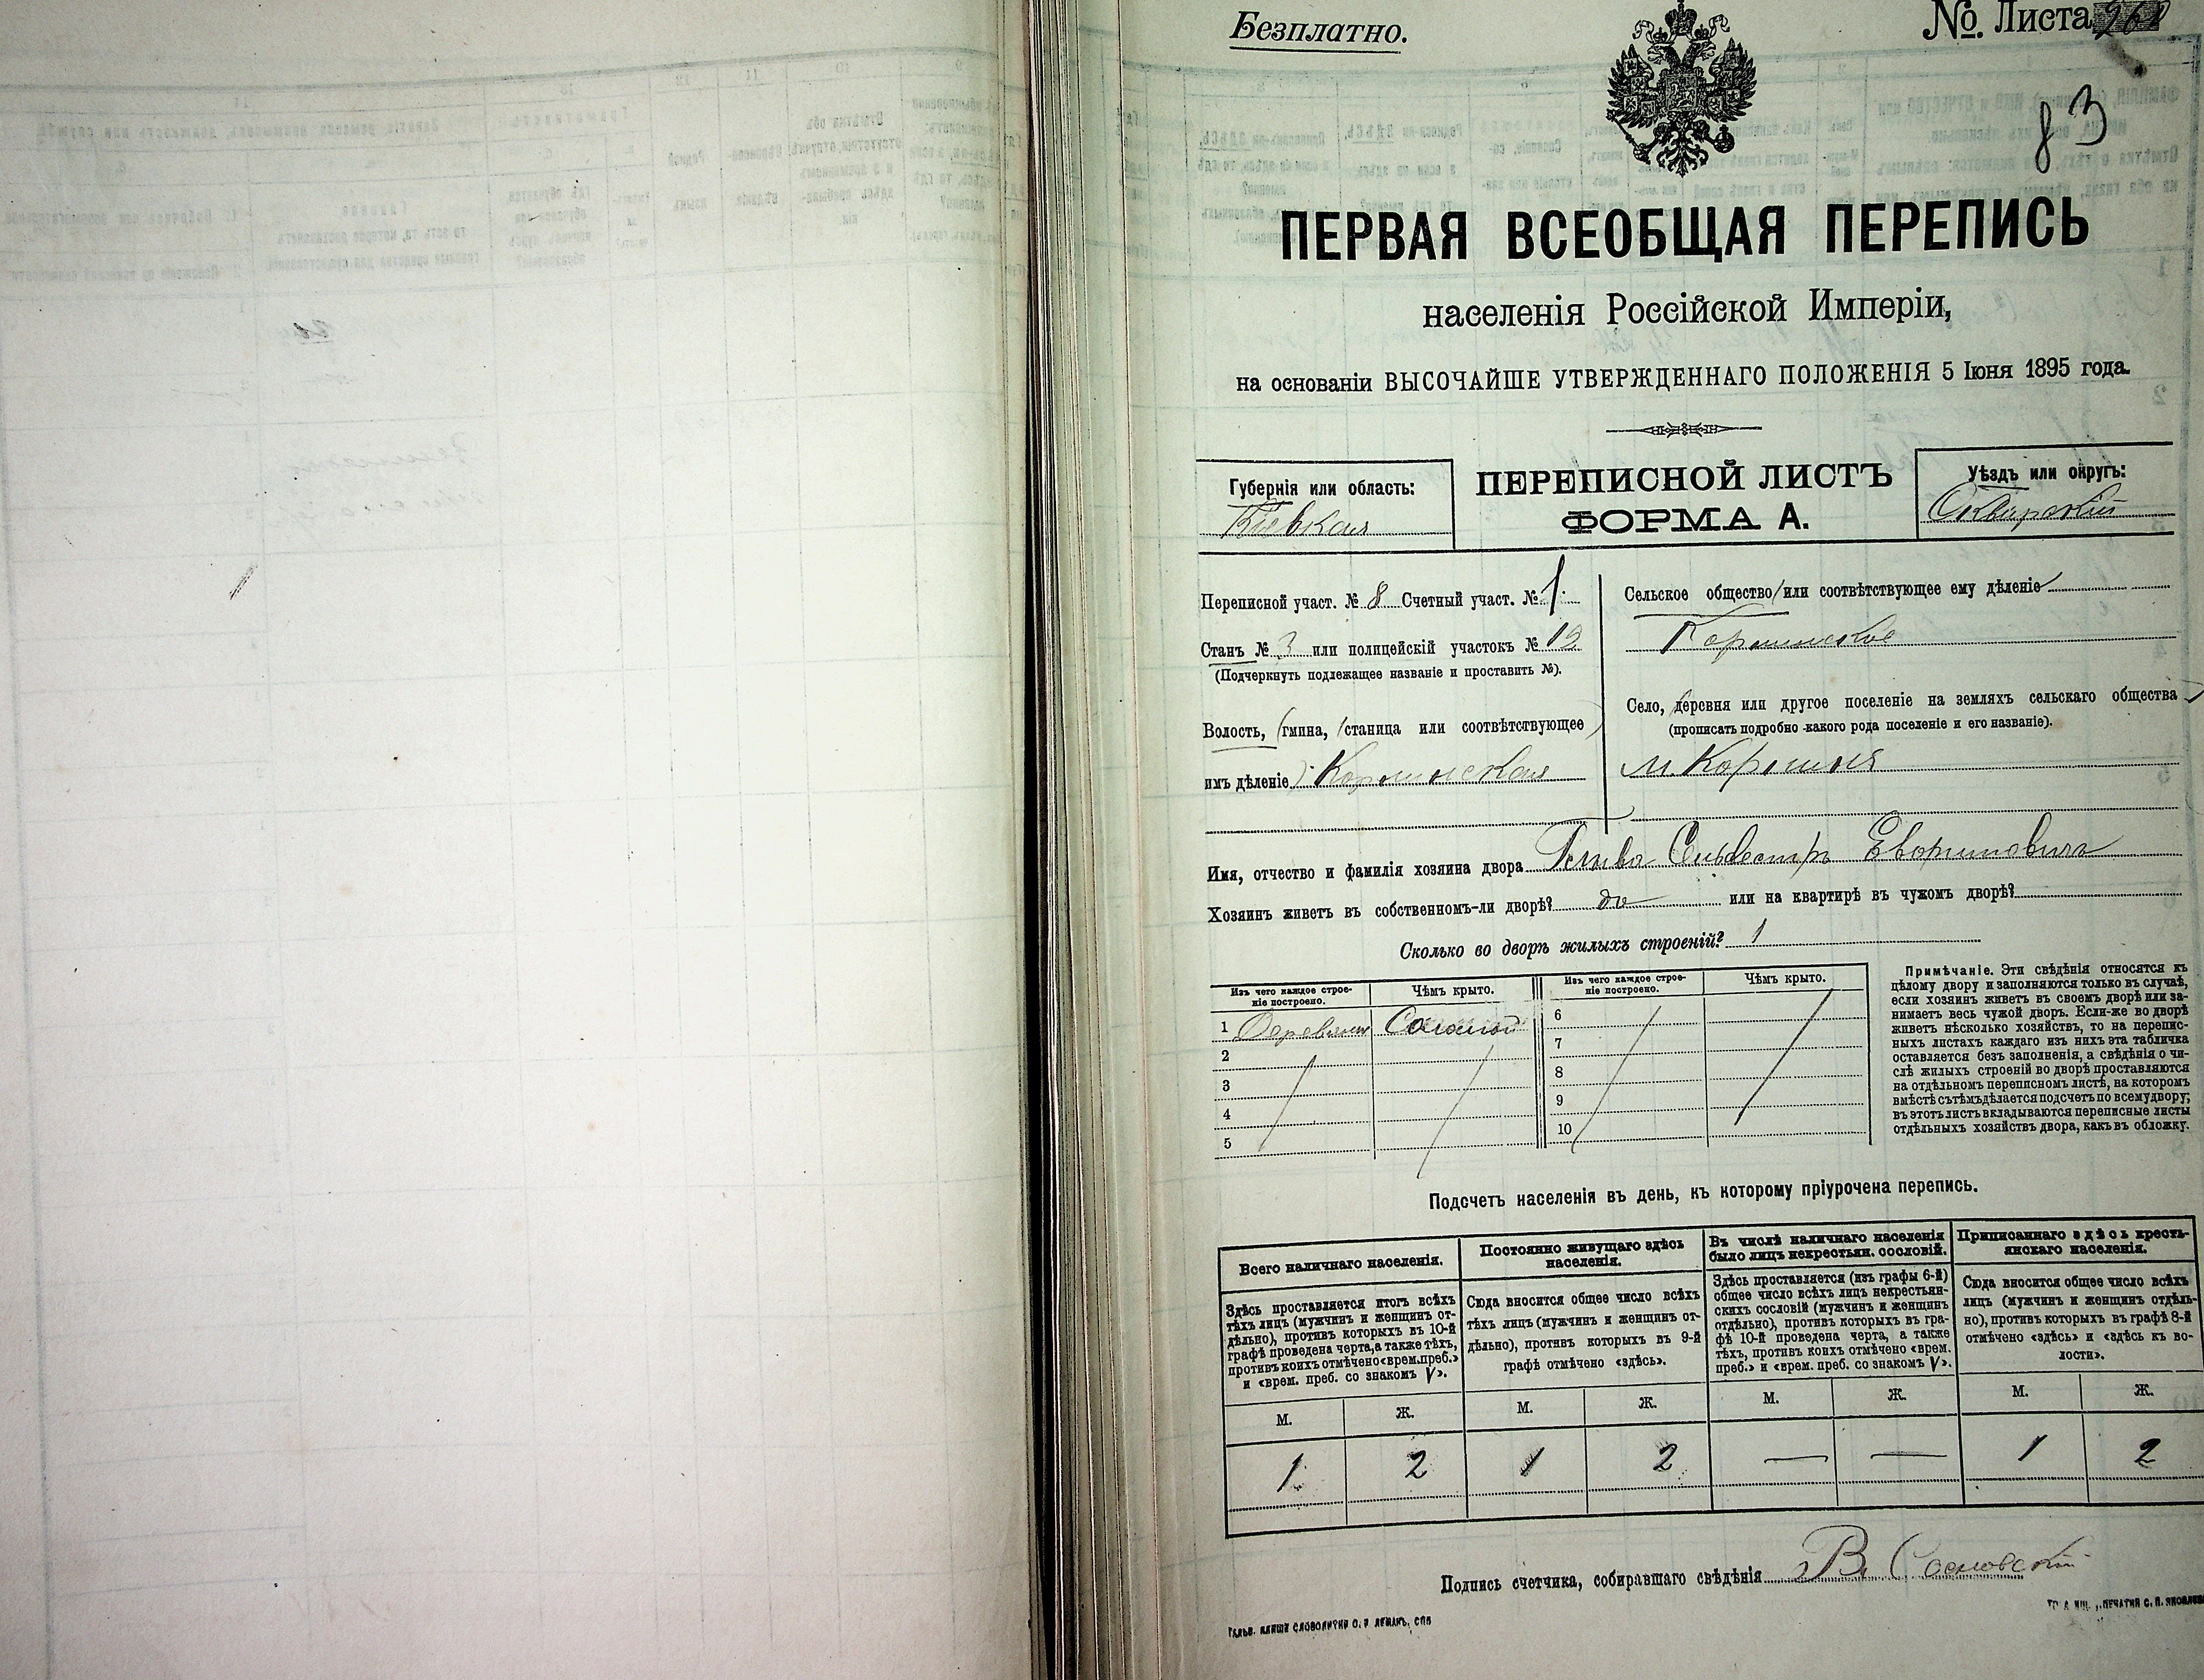 Безплатно.
№. Листа
83
ПЕРВАЯ ВСЕОБЩАЯ ПЕРЕПИСЬ
населенія Россійской Имперіи,
на основаніи ВЫСОЧАЙШЕ УТВЕРЖДЕННАГО ПОЛОЖЕНІЯ 5 Іюня 1895 года.
Губернія или область:
Кіевская
ПЕРЕПИСНОЙ ЛИСТЪ
ФОРМА А.
Уѣздъ или округъ:
Сквирскій
Переписной участ. № 8 Счетный участ. № 1.
Станъ № 3 или полицейскій участокъ № 12
(Подчеркнуть подлежащее названіе и проставить №).
Волость, (гмина, станица или соответствующее
имъ дѣленіе) Корнинская
Сельское общество или соотвѣтствующее ему дѣленіе
Корнинское
Село, деревня или другое поселеніе на земляхъ сельскаго общества
(прописать подробно какого рода поселеніе и его названіе).
м. Корнинъ
Имя, отчество и фамилія хозяина двора Сильвестръ
Хозяинъ живетъ въ собственномъ-ли дворѣ? да или на квартирѣ въ чужомъ дворѣ?
Сколько во дворѣ жилыхъ строеній? 1
Изъ чего каждое строе-
ніе построено.
Чѣмъ крыто.
Изъ чего каждое строе-
ніе построено.
Чѣмъ крыто.
1 Деревян Соломой
2
3
4
5
6
7
8
9
10
Примѣчаніе. Эти свѣдѣнія относятся къ
цѣлому двору и заполняются только въ случаѣ,
если хозяинъ живетъ въ своемъ дворѣ или за-
нимаетъ весь чужой дворъ. Если-же во дворѣ
живетъ нѣсколько хозяйствъ, то на перепис-
ныхъ листахъ каждаго изъ нихъ эта табличка
оставляется безъ заполненія, а свѣдѣнія о чи-
слѣ жилыхъ строеній во дворѣ проставляются
на отдѣльномъ переписномъ листѣ, на которомъ
вмѣстѣ съ тѣмъ дѣлается подсчетъ по всему двору;
въ этотъ листъ вкладываются переписные листы
отдѣльныхъ хозяйствъ двора, какъ въ обложку.
Подсчетъ населенія въ день, къ которому пріурочена перепись.
Всего наличнаго населенія.
Здѣсь проставляется итогъ всѣхъ
тѣхъ лицъ (мужчинъ и женщинъ от-
дѣльно), противъ которыхъ въ 10-й
графѣ проведена черта, а также тѣхъ,
противъ коихъ отмѣчено «врем. преб.»
и «врем. преб. со знакомъ V».
Постоянно живущаго здѣсь
населенія.
Сюда вносится общее число всѣхъ
тѣхъ лицъ (мужчинъ и женщинъ от-
дѣльно), противъ которыхъ въ 9-й
графѣ отмѣчено «здѣсь».
Въ числѣ наличнаго населенія
было лицъ некрестьян. сословій.
Здѣсь проставляется (изъ графы 6-й)
общее число всѣхъ лицъ некрестьян-
скихъ сословій (мужчинъ и женщинъ
отдѣльно), противъ которыхъ въ гра-
фѣ 10-й проведена черта, а также
тѣхъ, противъ коихъ отмѣчено «врем.
преб.» и «врем. преб. со знакомъ V».
Приписаннаго здѣсь кресть-
янскаго населенія.
Сюда вносится общее число всѣхъ
лицъ (мужчинъ и женщинъ отдѣль-
но), противъ которыхъ въ графѣ 8-й
отмѣчено «здѣсь» и «здѣсь къ во-
лости».
М. Ж. М. Ж. М. Ж. М. Ж.
1 2 1 2 — — 1 2
Подпись счетчика, собиравшаго свѣдѣнія В. Сосновскій